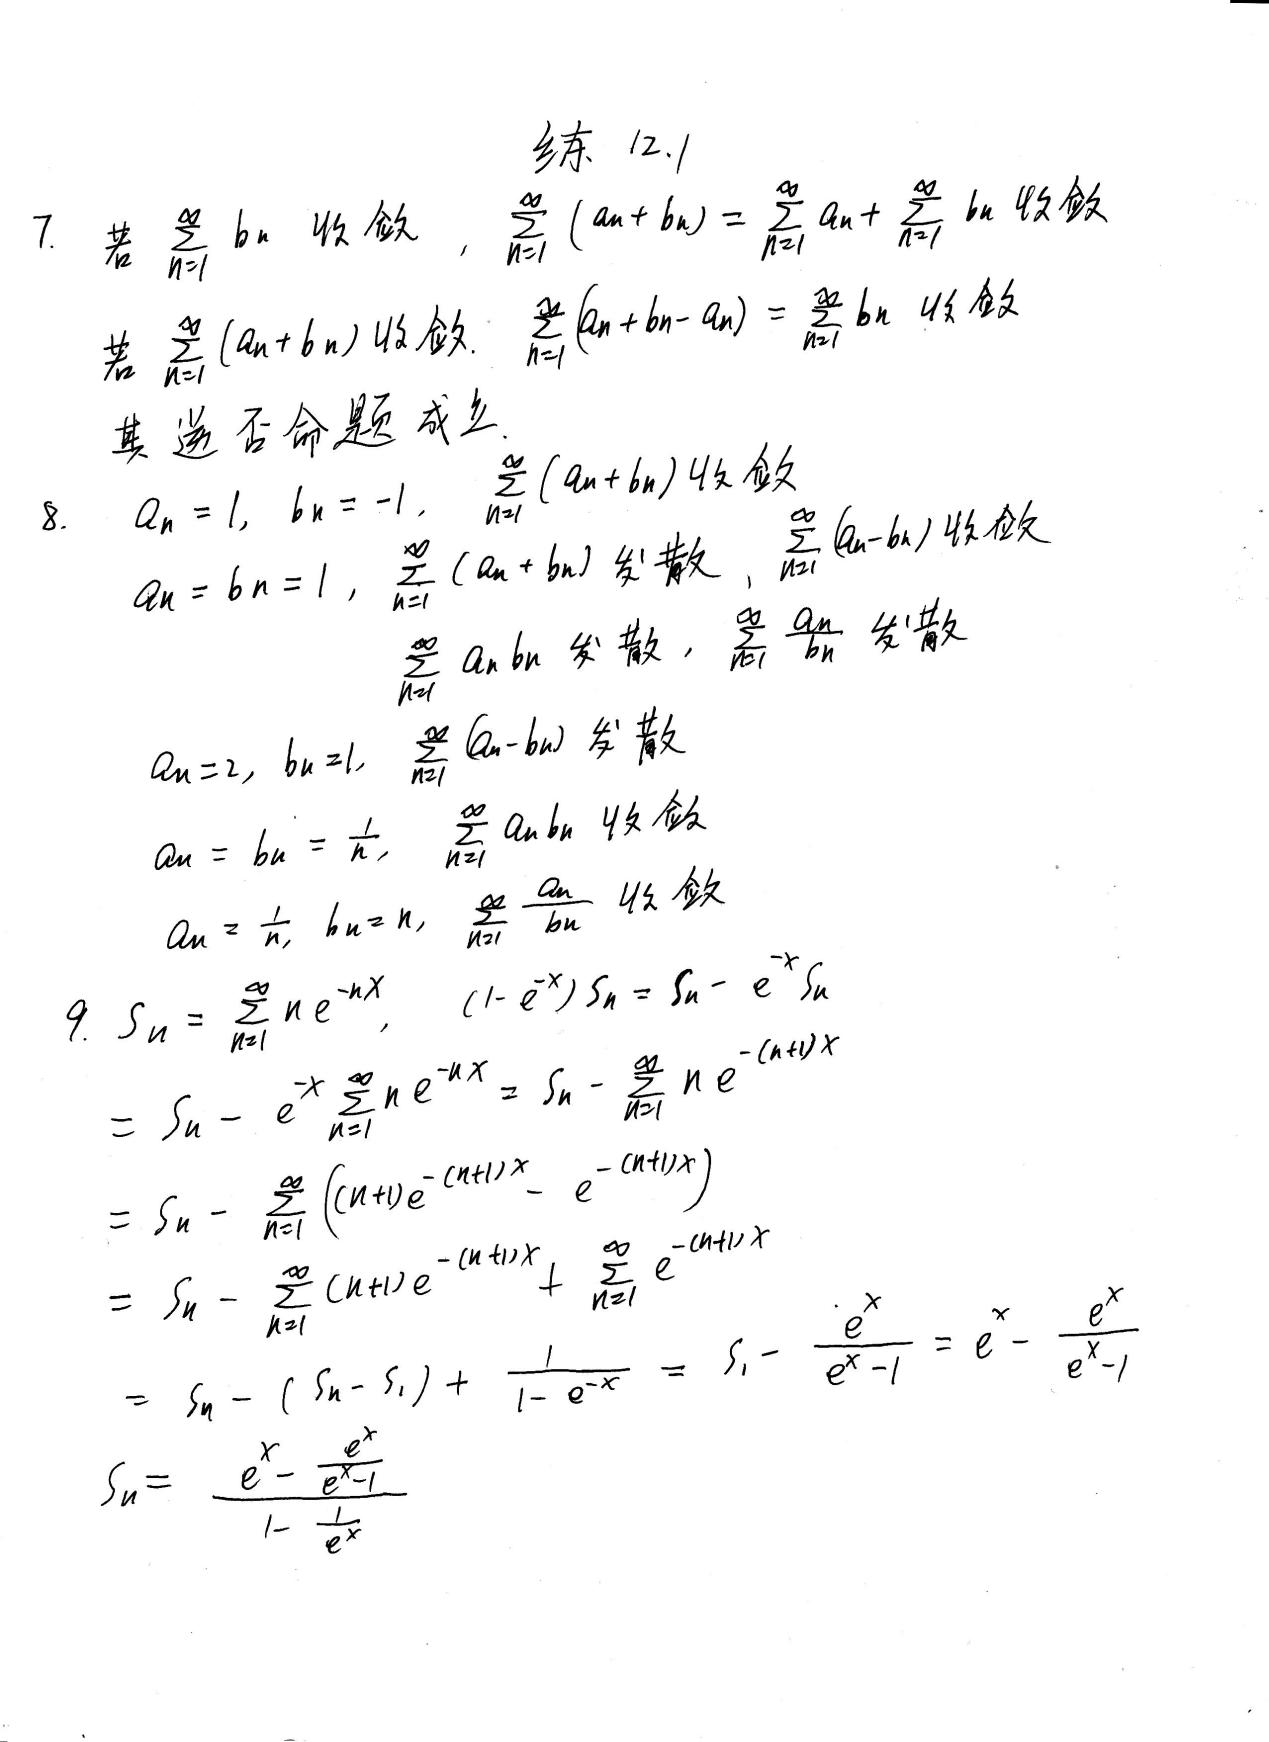 练 12.1
7. 若 $\sum_{n=1}^{\infty} b_n$ 收敛, $\sum_{n=1}^{\infty} (a_n + b_n) = \sum_{n=1}^{\infty} a_n + \sum_{n=1}^{\infty} b_n$ 收敛
若 $\sum_{n=1}^{\infty} (a_n + b_n)$ 收敛. $\sum_{n=1}^{\infty} (a_n + b_n - a_n) = \sum_{n=1}^{\infty} b_n$ 收敛
其逆否命题成立.
8. $a_n = 1, b_n = -1, \sum_{n=1}^{\infty} (a_n + b_n)$ 收敛
$a_n = b_n = 1, \sum_{n=1}^{\infty} (a_n + b_n)$ 发散, $\sum_{n=1}^{\infty} (a_n - b_n)$ 收敛
$\sum_{n=1}^{\infty} a_n b_n$ 发散, $\sum_{n=1}^{\infty} \frac{a_n}{b_n}$ 发散
$a_n = 2, b_n = 1, \sum_{n=1}^{\infty} (a_n - b_n)$ 发散
$a_n = b_n = \frac{1}{n}, \sum_{n=1}^{\infty} a_n b_n$ 收敛
$a_n = \frac{1}{n}, b_n = n, \sum_{n=1}^{\infty} \frac{a_n}{b_n}$ 收敛
9. $S_n = \sum_{n=1}^{\infty} n e^{-nx}, (1 - e^{-x}) S_n = S_n - e^{-x} S_n$
$= S_n - e^{-x} \sum_{n=1}^{\infty} n e^{-nx} = S_n - \sum_{n=1}^{\infty} n e^{-(n+1)x}$
$= S_n - \sum_{n=1}^{\infty} ((n+1) e^{-(n+1)x} - e^{-(n+1)x})$
$= S_n - \sum_{n=1}^{\infty} (n+1) e^{-(n+1)x} + \sum_{n=1}^{\infty} e^{-(n+1)x}$
$= S_n - (S_n - S_1) + \frac{1}{1 - e^{-x}} = S_1 - \frac{e^x}{e^x - 1} = e^x - \frac{e^x}{e^x - 1}$
$S_n = \frac{e^x - \frac{e^x}{e^x - 1}}{1 - \frac{1}{e^x}}$